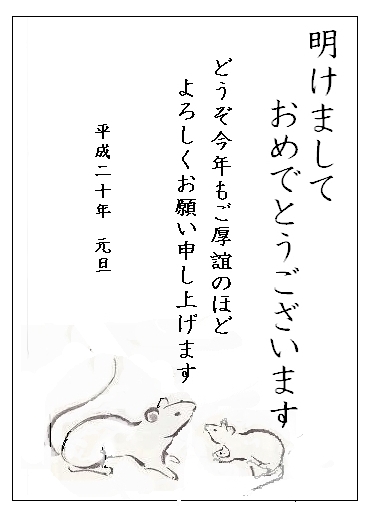 明けまして
おめでとうございます
どうぞ今年もご厚誼のほど
よろしくお願い申し上げます
平成二十年 元旦